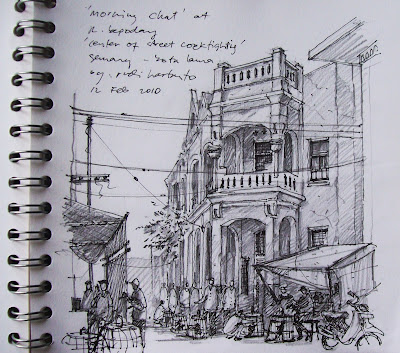 'Morning chat' at
jl. kepodang
center of street cockfightig'
Semarang - kota lama
by. rudi hartanto
12 Feb 2010